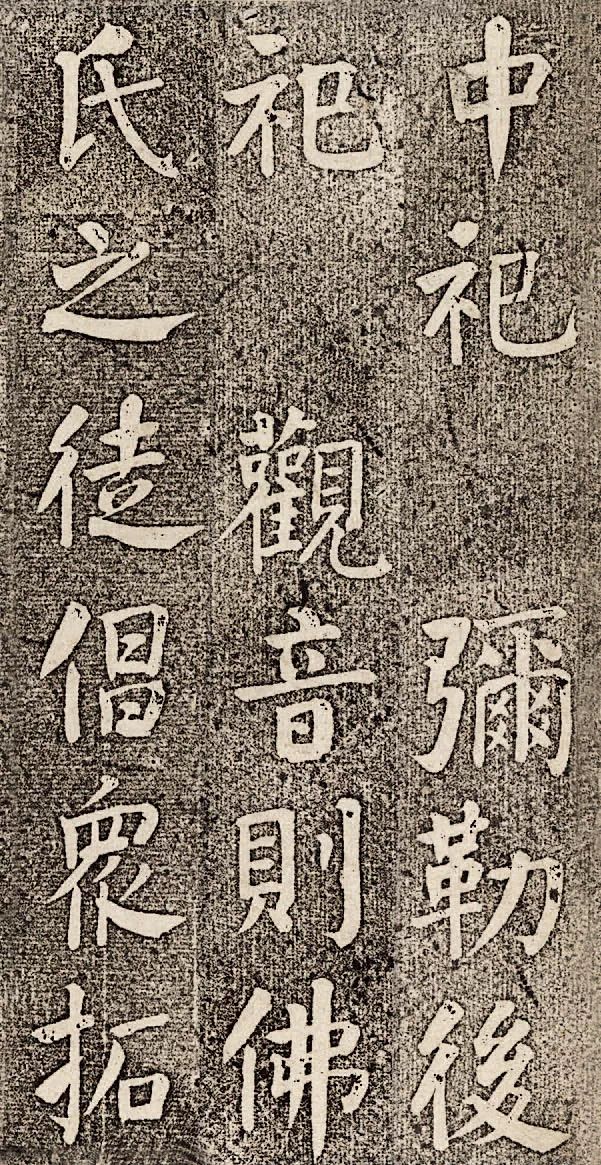 中祀彌勒後
祀觀音則佛
氏之徒倡衆拓